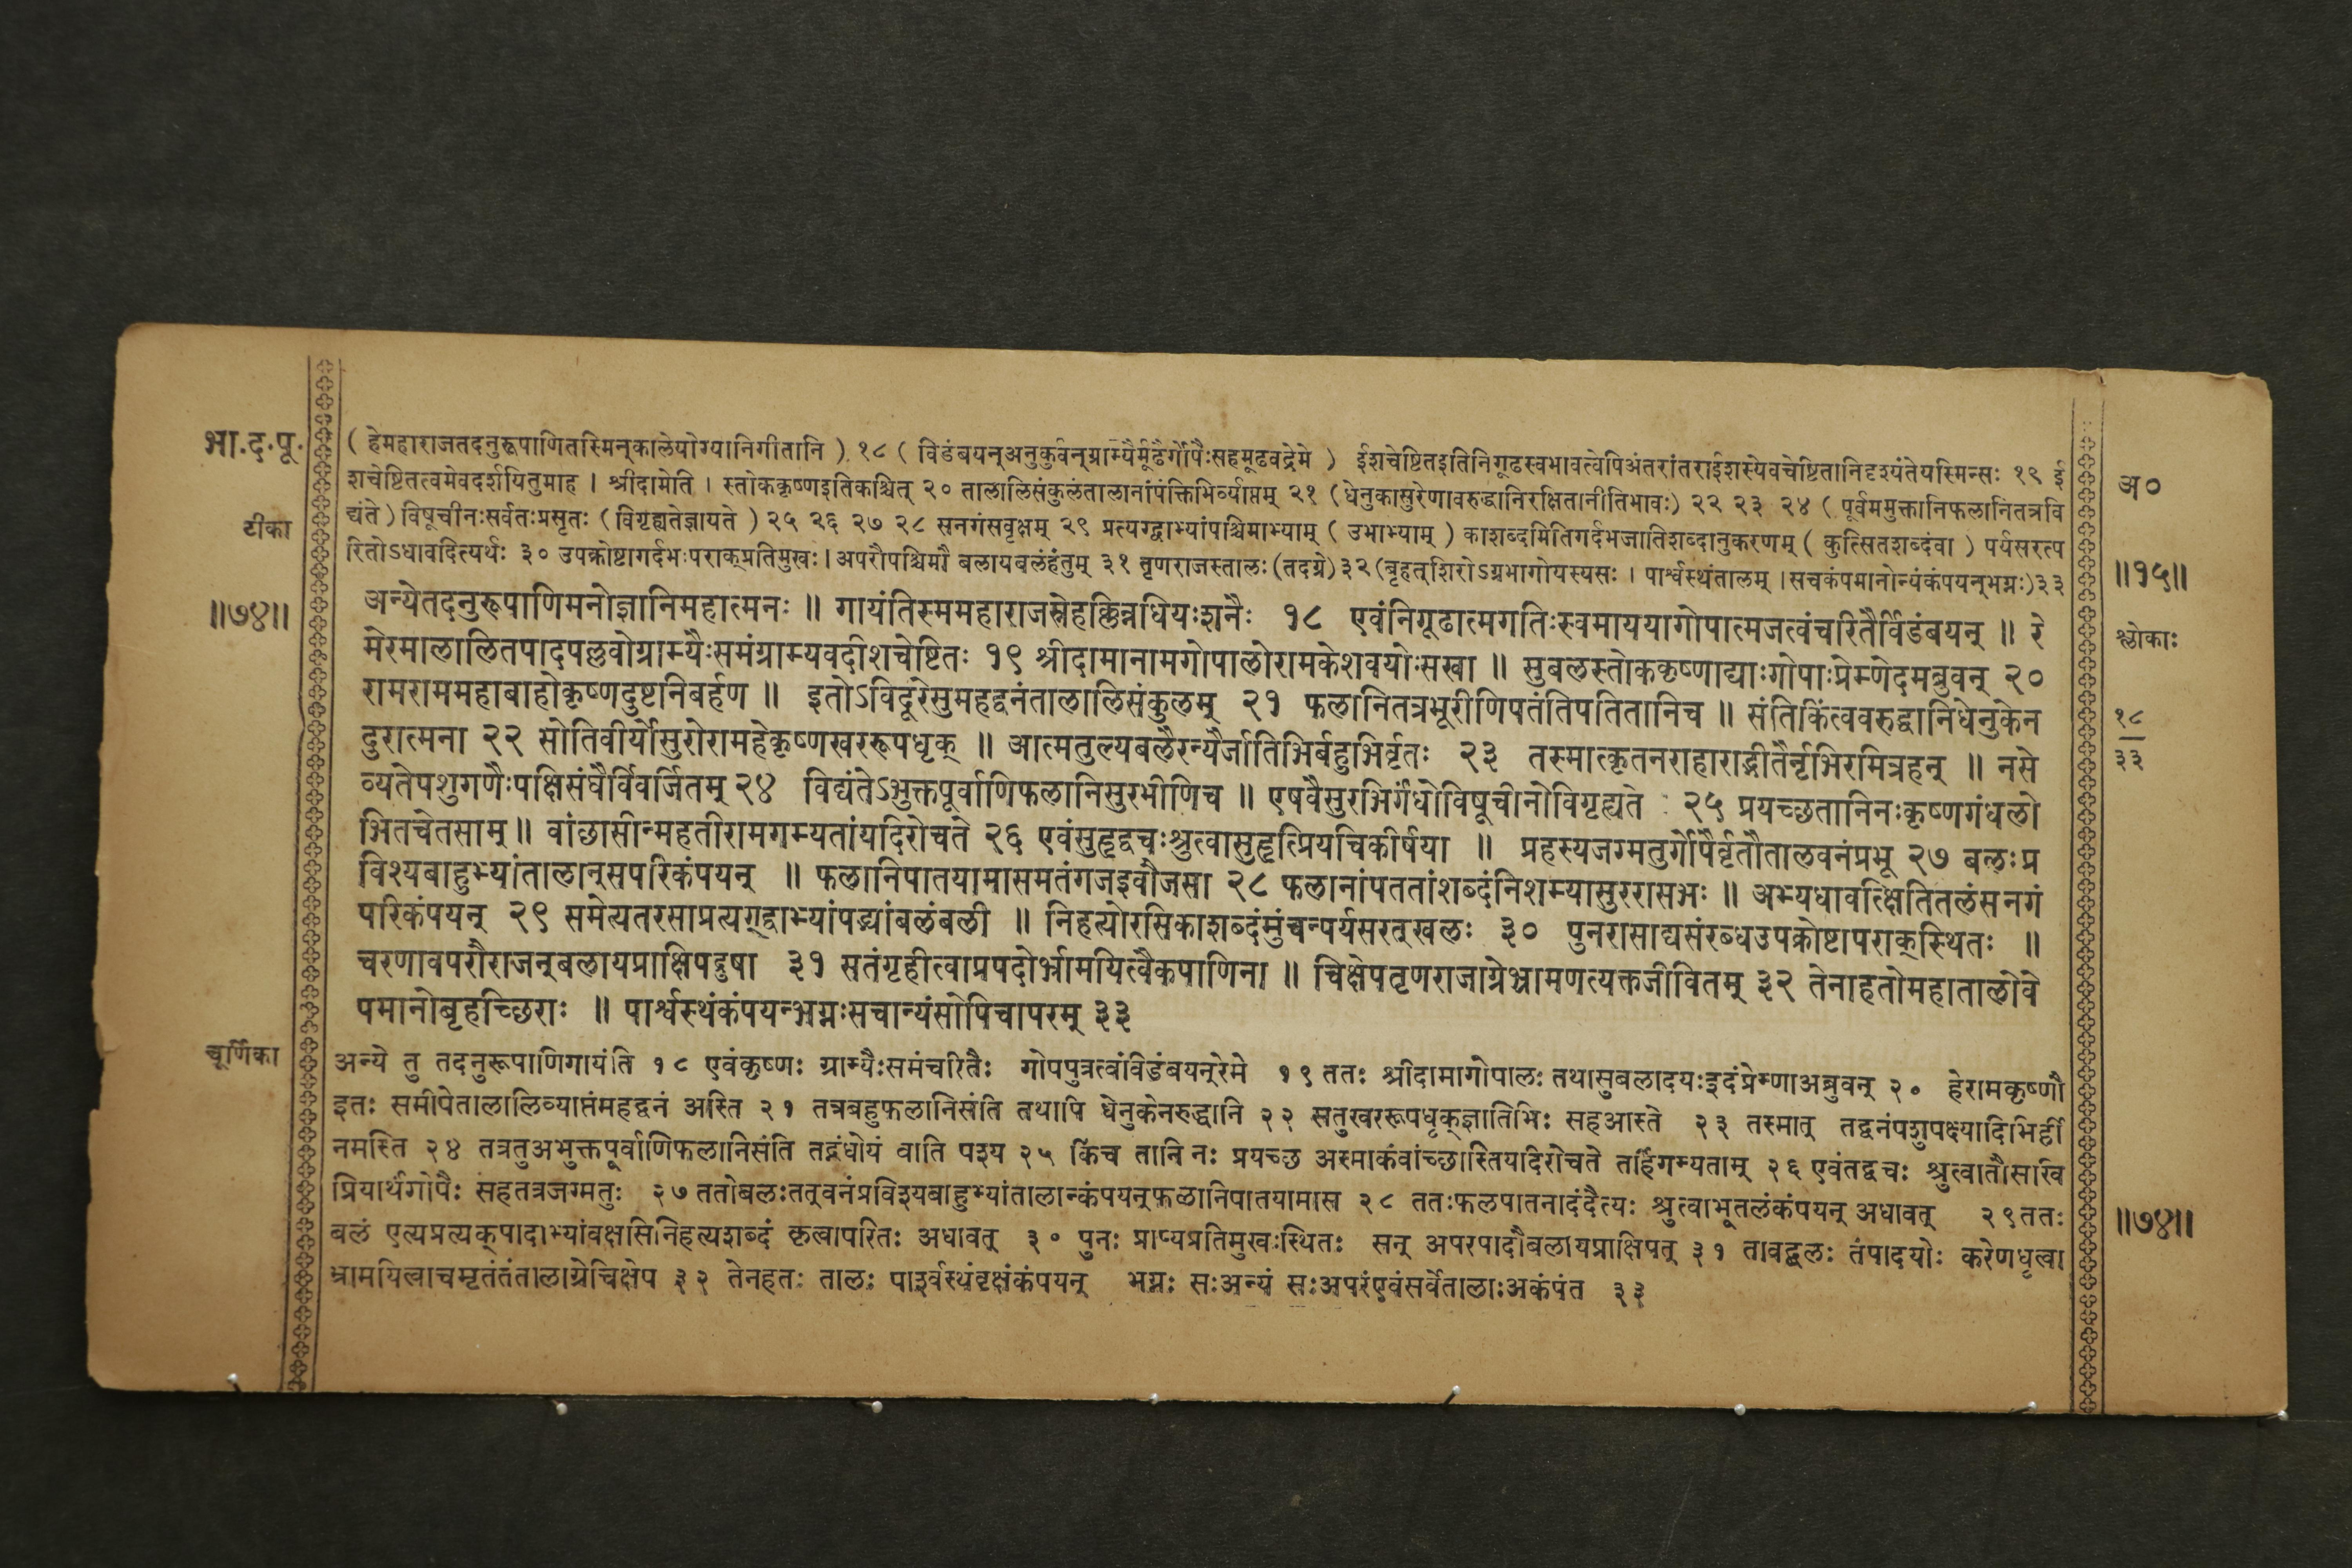 भा.द.पू.
( हेमहाराजतदनुरूपाणितस्मिन्कालेयोग्यानिगीतानि ) १८ ( विडंबयन्अनुकुर्वन्ग्राम्यैर्मूढैर्गोपैःसहमूढवद्रेमे ) ईशचेष्टितइतिनिगूढस्वभावत्वेपिअंतरांतराईशस्येवचेष्टितानिदृश्यंतेयस्मिन्सः १९ ई
शचेष्टितत्वमेवदर्शयितुमाह । श्रीदामेति । स्तोककृष्णइतिकश्चित् २० तालालिसंकुलंतालानांपंक्तिभिर्व्याप्तम् २१ ( धेनुकासुरेणावरुद्धानिरक्षितानीतिभावः) २२ २३ २४ ( पूर्वममुक्तानिफलानितत्रवि
द्यंते ) विषूचीनःसर्वतःप्रसृतः ( विगृह्यतेज्ञायते ) २५ २६ २७ २८ सनगंसवृक्षम् २९ प्रत्यग्द्वाभ्यांपश्चिमाभ्याम् ( उभाभ्याम् ) काशब्दमितिगर्दभजातिशब्दानुकरणम् ( कुत्सितशब्दंवा ) पर्यसरत्प
रितोऽधावदित्यर्थः ३० उपक्रोष्टागर्दभःपराक्प्रतिमुखः । अपरौपश्चिमौ बलायबलंहंतुम् ३१ तृणराजस्तालः (तदग्रे) ३२ (बृहत्शिरोऽग्रभागोयस्यसः । पार्श्वस्थंतालम् । सचकंपमानोन्यंकंपयन्भग्नः) ३३
टीका
॥७४॥
अ०
॥१५॥
श्लोकाः
१८
३३
अन्येतदनुरूपाणिमनोज्ञानिमहात्मनः ॥ गायंतिस्ममहाराजस्नेहक्लिन्नधियःशनैः १८ एवंनिगूढात्मगतिःस्वमाययागोपात्मजत्वंचरितैर्विडंबयन् ॥ रे
मेरमालालितपादपल्लवोग्राम्यैःसमंग्राम्यवदीशचेष्टितः १९ श्रीदामानामगोपालोरामकेशवयोःसखा ॥ सुबलस्तोककृष्णाद्याःगोपाःप्रेम्णेदमब्रुवन् २०
रामराममहाबाहोकृष्णदुष्टनिबर्हण ॥ इतोऽविदूरेसुमहद्वनंतालालिसंकुलम् २१ फलानितत्रभूरीणिपतंतिपतितानिच ॥ संतिकिंत्ववरुद्धानिधेनुकेन
दुरात्मना २२ सोतिवीर्योसुरोरामहेकृष्णखररूपधृक् ॥ आत्मतुल्यबलैरन्यैर्जातिभिर्बहुभिर्वृतः २३ तस्मात्कृतनराहाराद्भीतैर्नृभिरमित्रहन् ॥ नसे
व्यतेपशुगणैःपक्षिसंघैर्विवर्जितम् २४ विद्यंतेऽभुक्तपूर्वाणिफलानिसुरभीणिच ॥ एषवैसुरभिर्गंधोविषूचीनोविगृह्यते २५ प्रयच्छतानिनःकृष्णगंधलो
भितचेतसाम् ॥ वांछासीन्महतीरामगम्यतांयदिरोचते २६ एवंसुहृद्वचःश्रुत्वासुहृत्प्रियचिकीर्षया ॥ प्रहस्यजग्मतुर्गोपैर्वृतौतालवनंप्रभू २७ बलःप्र
विश्यबाहुभ्यांतालान्सपरिकंपयन् ॥ फलानिपातयामासमतंगजइवौजसा २८ फलानांपततांशब्दंनिशम्यासुररासभः ॥ अभ्यधावत्क्षितितलंसनगं
परिकंपयन् २९ समेत्यतरसाप्रत्यग्द्वाभ्यांपद्भ्यांबलंबली ॥ निहत्योरसिकाशब्दंमुंचन्पर्यसरत्खलः ३० पुनरासाद्यसंरब्धउपक्रोष्टापराक्स्थितः ॥
चरणावपरौराजन्बलायप्राक्षिपद्रुषा ३१ सतंगृहीत्वाप्रपदोर्भ्रामयित्वैकपाणिना ॥ चिक्षेपतृणराजाग्रेभ्रामणत्यक्तजीवितम् ३२ तेनाहतोमहातालोवे
पमानोबृहच्छिराः ॥ पार्श्वस्थंकंपयन्भग्नःसचान्यंसोपिचापरम् ३३
चूर्णिका
अन्ये तु तदनुरूपाणिगायंति १८ एवंकृष्णः ग्राम्यैःसमंचरितैः गोपपुत्रत्वंविडंबयन्रेमे १९ ततः श्रीदामागोपालः तथासुबलादयःइदंप्रेम्णाअब्रुवन् २० हेरामकृष्णौ
इतः समीपेतालालिव्याप्तंमहद्वनं अस्ति २१ तत्रबहुफलानिसंति तथापि धेनुकेनरुद्धानि २२ सतुखररूपधृक्ज्ञातिभिः सहआस्ते २३ तस्मात् तद्वनंपशुपक्ष्यादिभिर्ही
नमस्ति २४ तत्रतुअभुक्तपूर्वाणिफलानिसंति तद्गंधोयं वाति पश्य २५ किंच तानि नः प्रयच्छ अस्माकंवांच्छास्तियदिरोचते तर्हिगम्यताम् २६ एवंतद्वचः श्रुत्वातौसखि
प्रियार्थंगोपैः सहतत्रजग्मतुः २७ ततोबलःतत्वनंप्रविश्यबाहुभ्यांतालान्कंपयन्फलानिपातयामास २८ ततःफलपातनादंदैत्यः श्रुत्वाभूतलंकंपयन् अधावत् २९ ततः
बलं एत्यप्रत्यक्पादाभ्यांवक्षसिनिहत्यशब्दं कृत्वापरितः अधावत् ३० पुनः प्राप्यप्रतिमुखःस्थितः सन् अपरपादौबलायप्राक्षिपत् ३१ तावद्बलः तंपादयोः करेणधृत्वा
भ्रामयित्वाचमृतंतंतालाग्रेचिक्षेप ३२ तेनहतः तालः पार्श्वस्थंवृक्षंकंपयन् भग्नः सःअन्यं सःअपरंएवंसर्वेतालाःअकंपंत ३३
॥७४॥